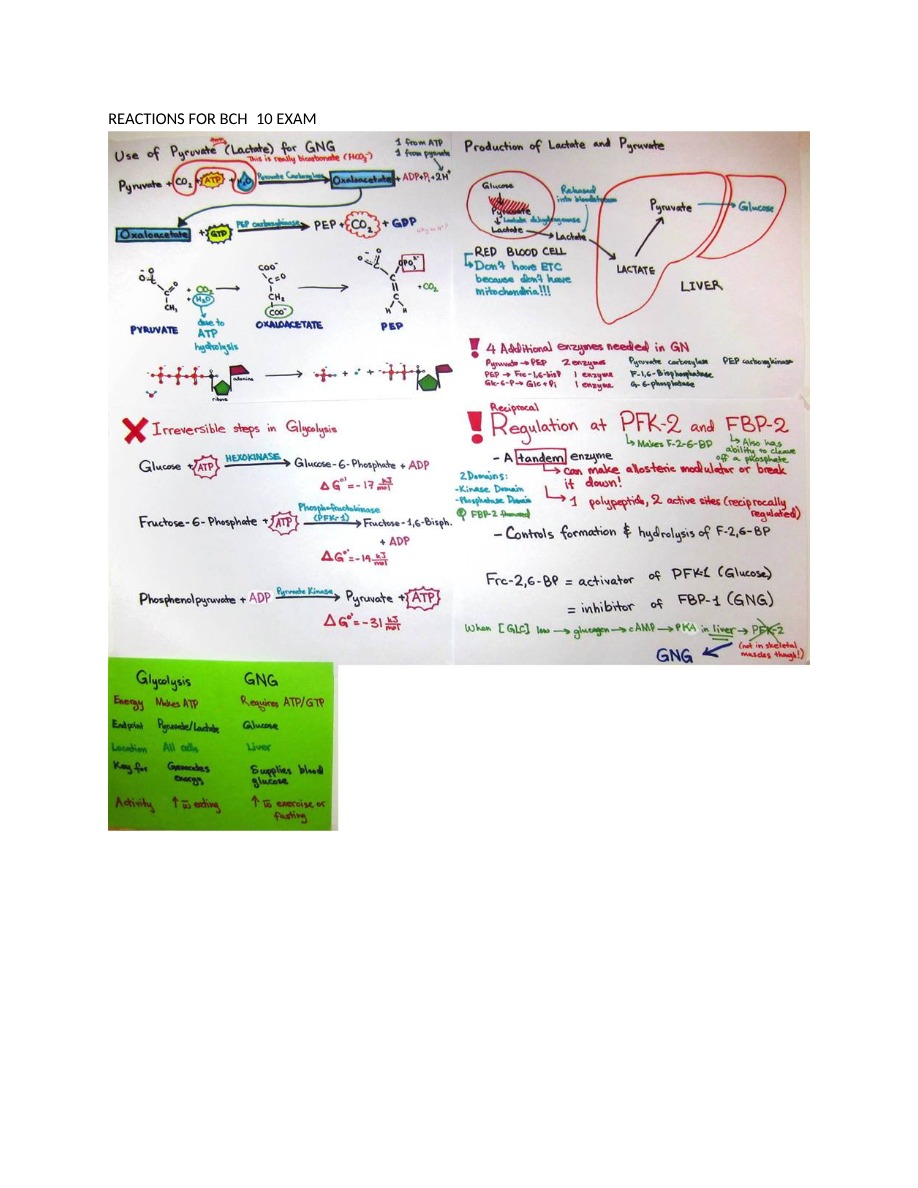 REACTIONS FOR BCH 10 EXAM
Use of Pyruvate (Lactate) for GNG
This is really bicarbonate (HCO3-)
1 from ATP
1 from pyruvate
Pyruvate + CO2 + ATP + H2O Pyruvate Carboxylase Oxaloacetate + ADP+Pi+2H+
Oxaloacetate + GTP PEP carboxykinase PEP + CO2 + GDP
COO-
C=O
CH2
COO-
OPO3 2-
CH3
+ CO2
+ H2O
+ CO2
PYRUVATE
OXALOACETATE
PEP
due to
ATP
hydrolysis
adenine
ribose
Production of Lactate and Pyruvate
Glucose
Pyruvate
Lactate dehydrogenase
Lactate
Released
into bloodstream
Lactate
Pyruvate
Glucose
LACTATE
LIVER
RED BLOOD CELL
Don't have ETC
because don't have
mitochondria!!!
! 4 Additional enzymes needed in GN
Pyruvate → PEP 2 enzymes Pyruvate carboxylase PEP carboxykinase
PEP → Frc-1,6-bisP 1 enzyme F-1,6-Bisphosphatase
Glc-6-P → Glc + Pi 1 enzyme G-6-phosphatase
Irreversible steps in Glycolysis
Glucose + ATP HEXOKINASE Glucose-6-Phosphate + ADP
ΔG°' = -17 kJ/mol
Fructose-6-Phosphate + ATP Phosphofructokinase (PFK-1) Fructose-1,6-Bisph.
+ ADP
ΔG°' = -14 kJ/mol
Phosphenolpyruvate + ADP Pyruvate Kinase Pyruvate + ATP
ΔG°' = -31 kJ/mol
Reciprocal
! Regulation at PFK-2 and FBP-2
Makes F-2-6-BP
Also has
ability to cleave
off a phosphate
- A tandem enzyme
can make allosteric modulator or break
it down!
2 Domains:
-Kinase Domain
-Phosphatase Domain
1 polypeptide, 2 active sites (reciprocally
regulated)
- Controls formation & hydrolysis of F-2,6-BP
Frc-2,6-BP = activator of PFK-1 (Glucose)
= inhibitor of FBP-1 (GNG)
When [GLC] low → glucagon → cAMP → PKA in liver → PFK-2
(not in skeletal
muscles though!)
GNG
Glycolysis GNG
Energy Makes ATP Requires ATP/GTP
Endpoint Pyruvate/Lactate Glucose
Location All cells Liver
Key for Generates Supplies blood
energy glucose
Activity ↑ w̄ eating ↑ w̄ exercise or
fasting